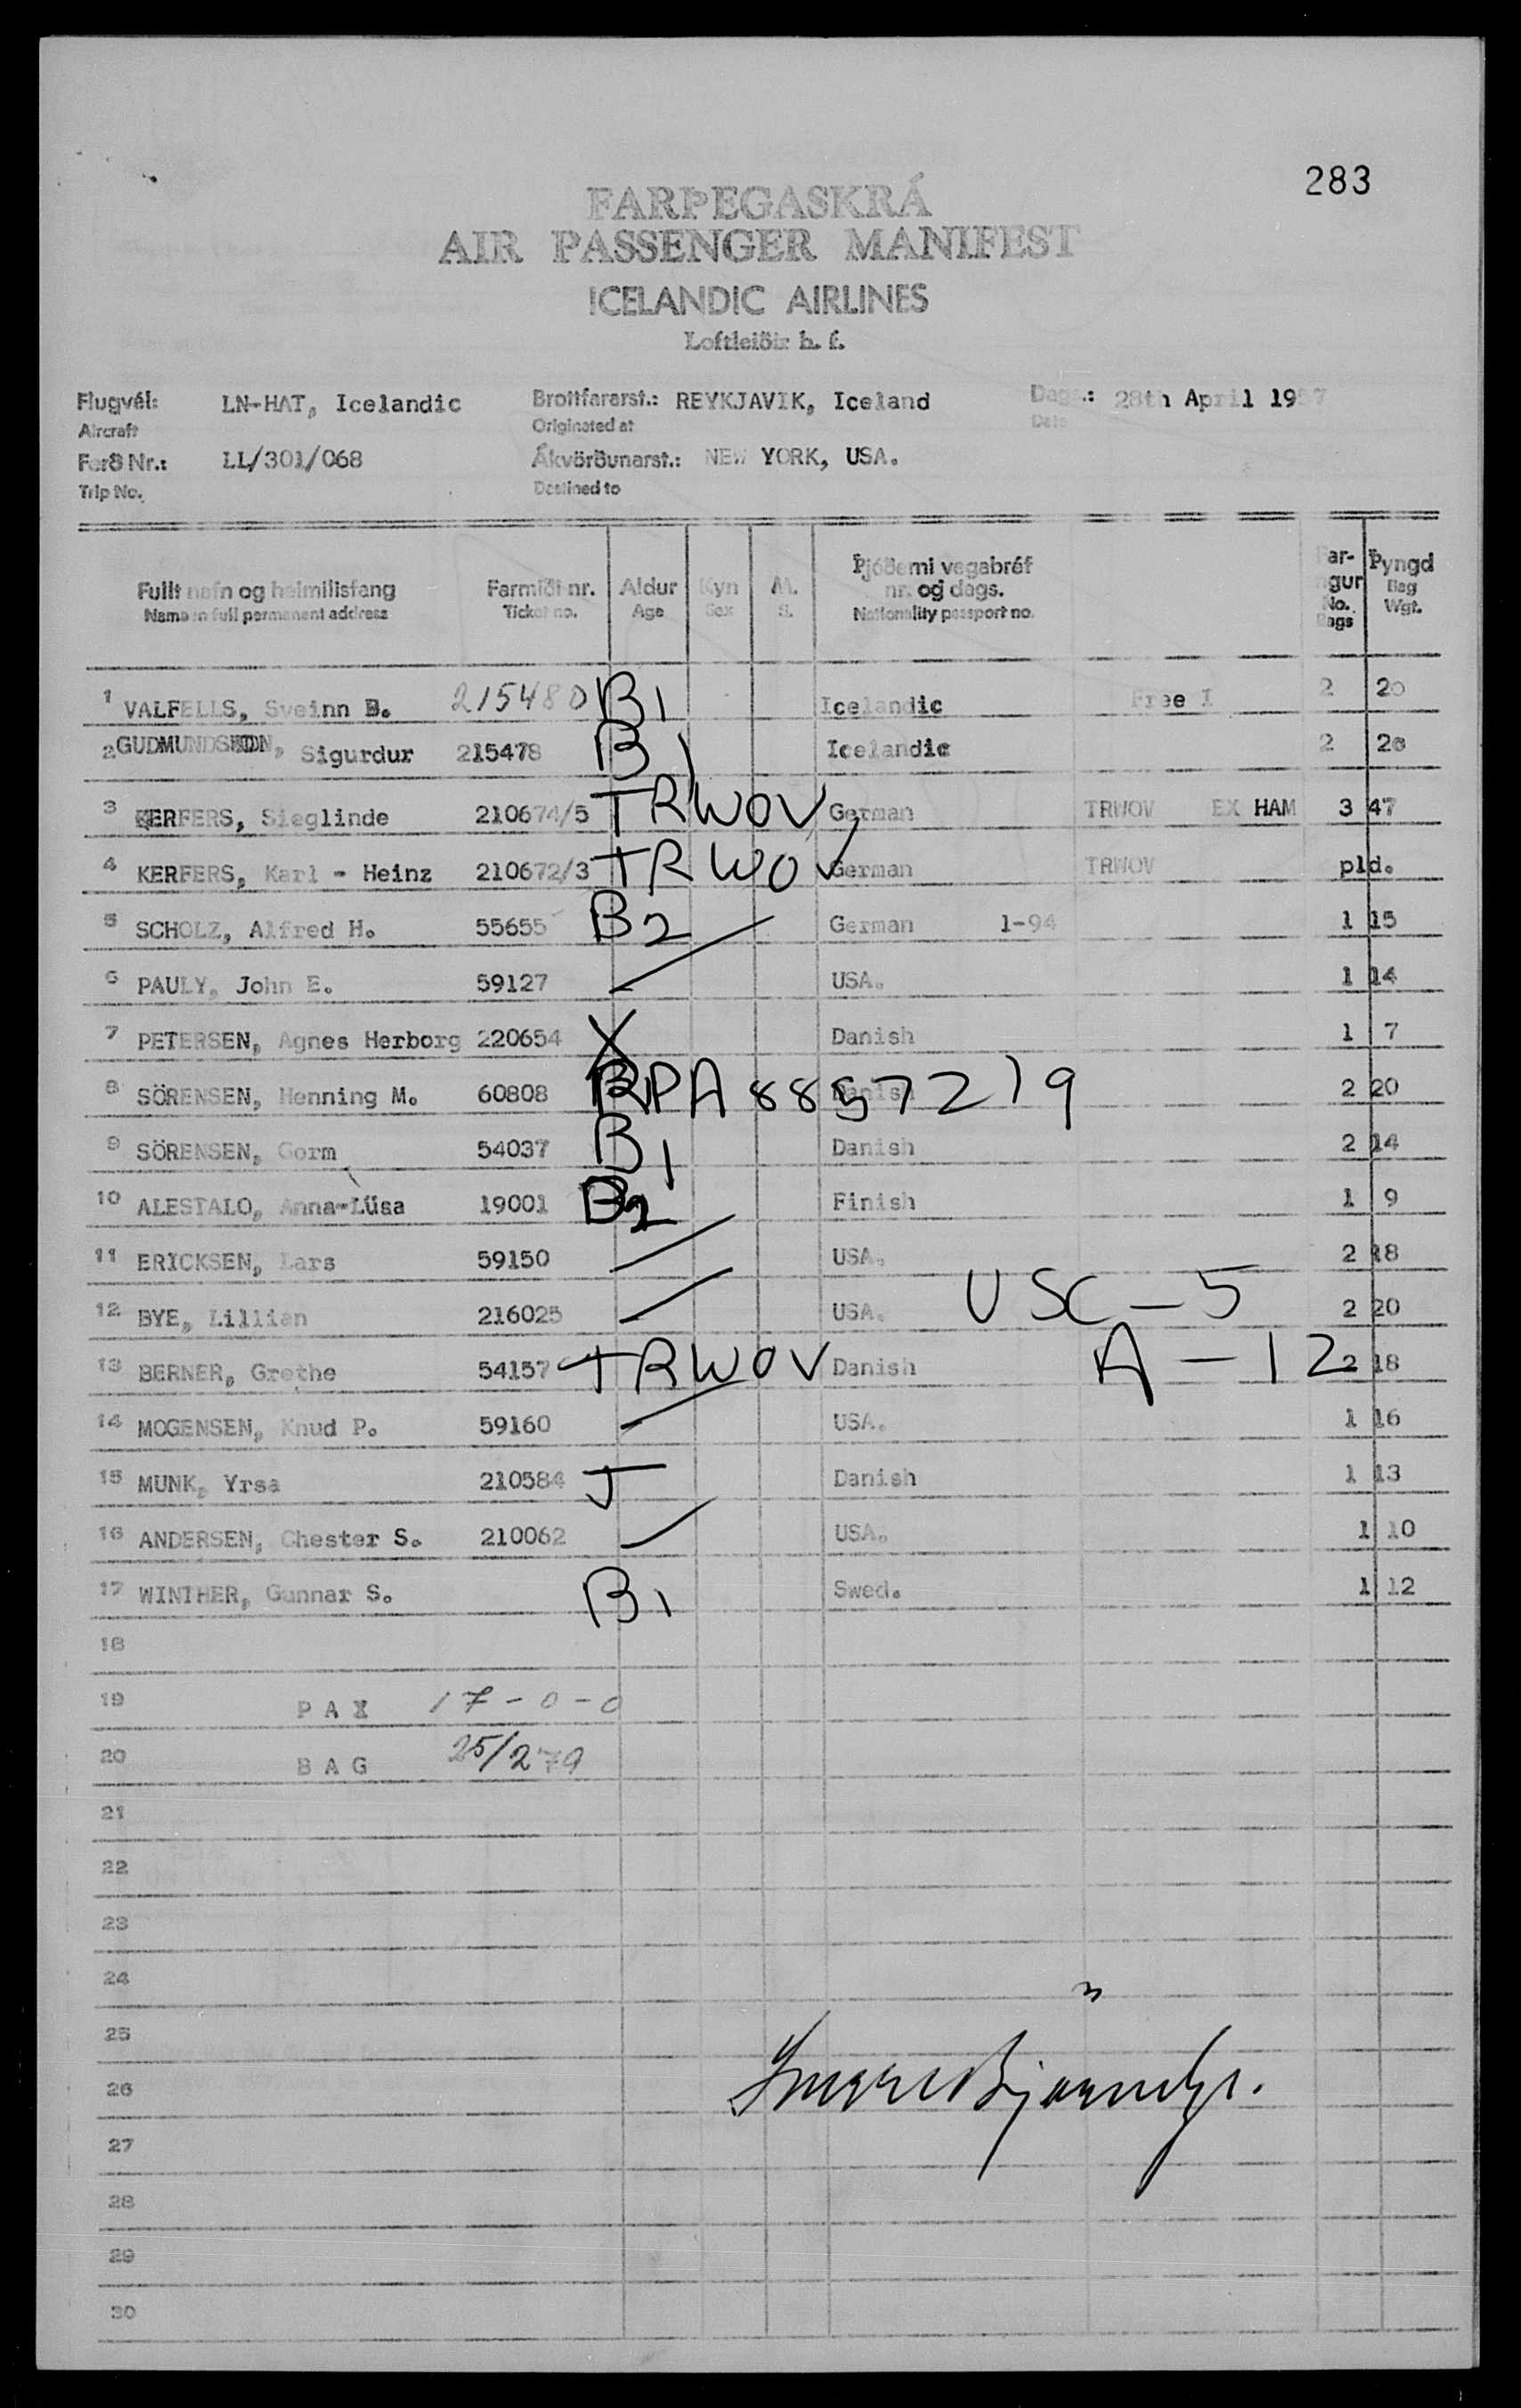 283
FARÞEGASKRÁ
AIR PASSENGER MANIFEST
ICELANDIC AIRLINES
Loftleiðir h. f.
Flugvél: LN-HAT, Icelandic Brottfararst.: REYKJAVIK, Iceland Dags.: 28th April 1957
Aircraft Originated at Date
Ferð Nr.: LL/301/068 Ákvörðunarst.: NEW YORK, USA.
Trip No. Destined to
Fullt nafn og heimilisfang Farmiði nr. Aldur Kyn M. Þjóðerni vegabréf nr. og dags. Far-ngur Þyngd
Name in full permanent address Ticket no. Age Sex S. Nationality passport no. No. Bags Bag Wgt.
1 VALFELLS, Sveinn B. 215480 B1 Icelandic Free I 2 20
2 GUDMUNDSSON, Sigurdur 215478 B1 Icelandic 2 20
3 KERFERS, Sieglinde 210674/5 TRWOV German TRWOV EX HAM 3 47
4 KERFERS, Karl - Heinz 210672/3 TRWOV German TRWOV pld.
5 SCHOLZ, Alfred H. 55655 B2 German 1-94 1 15
6 PAULY, John E. 59127 USA. 1 14
7 PETERSEN, Agnes Herborg 220654 X Danish 1 7
8 SÖRENSEN, Henning M. 60808 RPA 8857219 Danish 2 20
9 SÖRENSEN, Gorm 54037 B1 Danish 2 14
10 ALESTALO, Anna-Lüsa 19001 B2 Finish 1 9
11 ERICKSEN, Lars 59150 USA. 2 18
12 BYE, Lillian 216025 USA. USC-5 2 20
13 BERNER, Grethe 54157 TRWOV Danish A-12 2 18
14 MOGENSEN, Knud P. 59160 USA. 1 16
15 MUNK, Yrsa 210584 J Danish 1 13
16 ANDERSEN, Chester S. 210062 USA. 1 10
17 WINTHER, Gunnar S. B1 Swed. 1 12
18
19 PAX 17-0-0
20 BAG 25/279
21
22
23
24
25
26
27
28
29
30